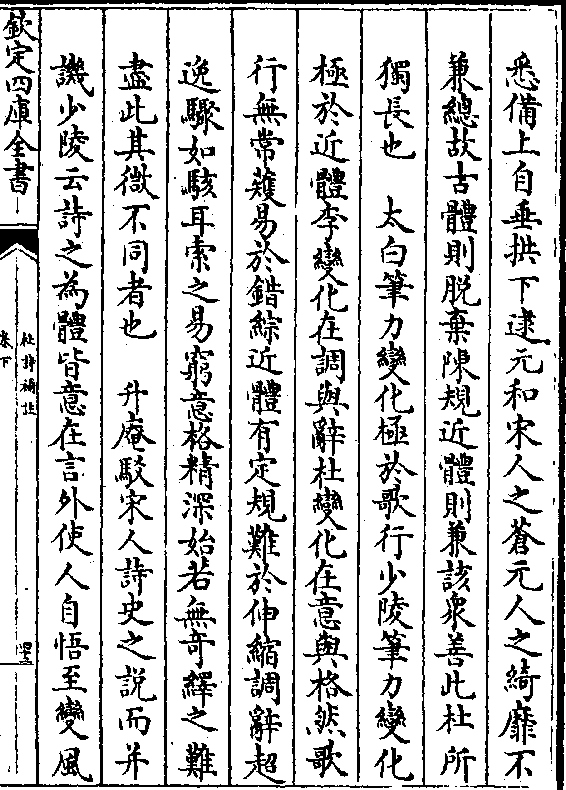 悉備上自垂拱下逮元和宋人之蒼元人之綺靡不
兼總故古體則脫棄陳規近體則兼該衆善此杜所
獨長也　太白筆力變化極於歌行少陵筆力變化
極於近體李變化在調與辭杜變化在意與格然歌
行無常矱易於錯綜近體有定規難於伸縮調辭超
逸驟如駭耳索之易窮意格精深始若無奇繹之難
盡此其微不同者也　升庵駁宋人詩史之説而并
譏少陵云詩之為體皆意在言外使人自悟至變風
欽定四庫全書
杜詩補註
卷下